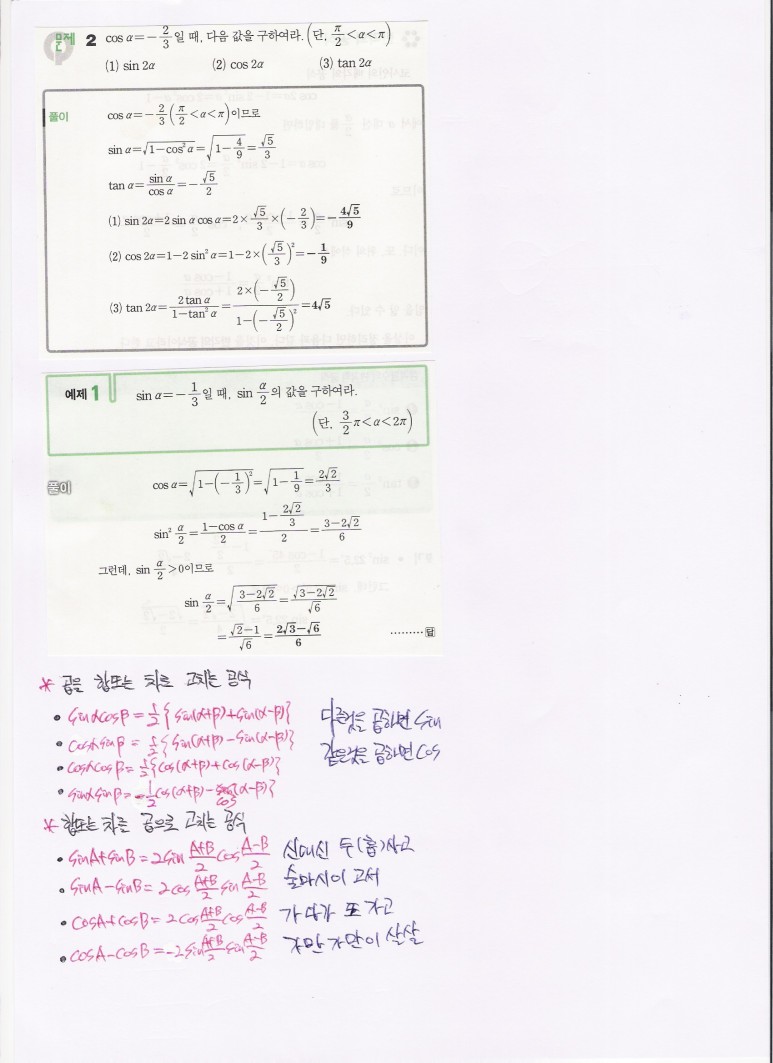 문제 2 cos α=-2/3일 때, 다음 값을 구하여라. (단, π/2<α<π)
(1) sin 2α (2) cos 2α (3) tan 2α
풀이 cos α=-2/3(π/2<α<π)이므로
sin α=√(1-cos²α)=√(1-4/9)=√5/3
tan α=sin α/cos α=-√5/2
(1) sin 2α=2 sin α cos α=2×√5/3×(-2/3)=-4√5/9
(2) cos 2α=1-2 sin²α=1-2×(√5/3)²=-1/9
(3) tan 2α=2 tan α/(1-tan²α)=2×(-√5/2)/(1-(-√5/2)²)=4√5
예제 1 sin α=-1/3일 때, sin α/2의 값을 구하여라.
(단, 3/2π<α<2π)
풀이 cos α=√(1-(-1/3)²)=√(1-1/9)=2√2/3
sin² α/2=(1-cos α)/2=(1-2√2/3)/2=(3-2√2)/6
그런데, sin α/2>0이므로
sin α/2=√((3-2√2)/6)=√(3-2√2)/√6
=(√2-1)/√6=(2√3-√6)/6 ………답
* 곱을 합또는 차로 고치는 공식
• sinαcosβ=1/2{sin(α+β)+sin(α-β)} 다른것을 곱하면 sin
• cosαsinβ=1/2{sin(α+β)-sin(α-β)} 같은것을 곱하면 cos
• cosαcosβ=1/2{cos(α+β)+cos(α-β)}
• sinαsinβ=-1/2{cos(α+β)-cos(α-β)}
* 합또는 차를 곱으로 고치는 공식
• sinA+sinB=2sin (A+B)/2 cos (A-B)/2 신대신 두(홉)사고
• sinA-sinB=2cos (A+B)/2 sin (A-B)/2 술마시이 고서
• cosA+cosB=2cos (A+B)/2 cos (A-B)/2 가다가 또 가고
• cosA-cosB=-2sin (A+B)/2 sin (A-B)/2 가만가만이 살살